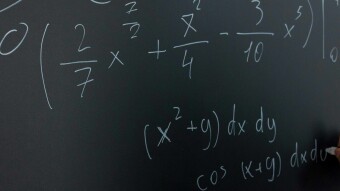 0 ( 2/7 x^(7/2) + x^2/4 - 3/10 x^5 ) | 0
(x^2 + y) dx dy
cos (x+y) dx dy